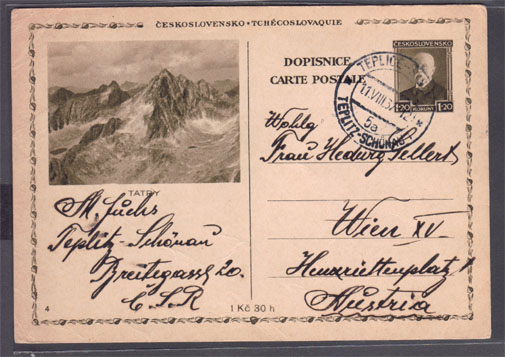 ČESKOSLOVENSKO • TCHÉCOSLOVAQUIE
DOPISNICE
CARTE POSTALE
ČESKOSLOVENSKO
1·20 1·20
TEPLICE
11.VIII.3
5a
TEPLITZ-SCHÖNAU
TATRY
Wohlg
Frau Hedwig Sellert
Wien XV.
Henriettenplatz 1
Austria
M. Fuchs
Teplitz-Schönau
Breitegasse 20.
Č.S.R
4
1 Kč 30 h